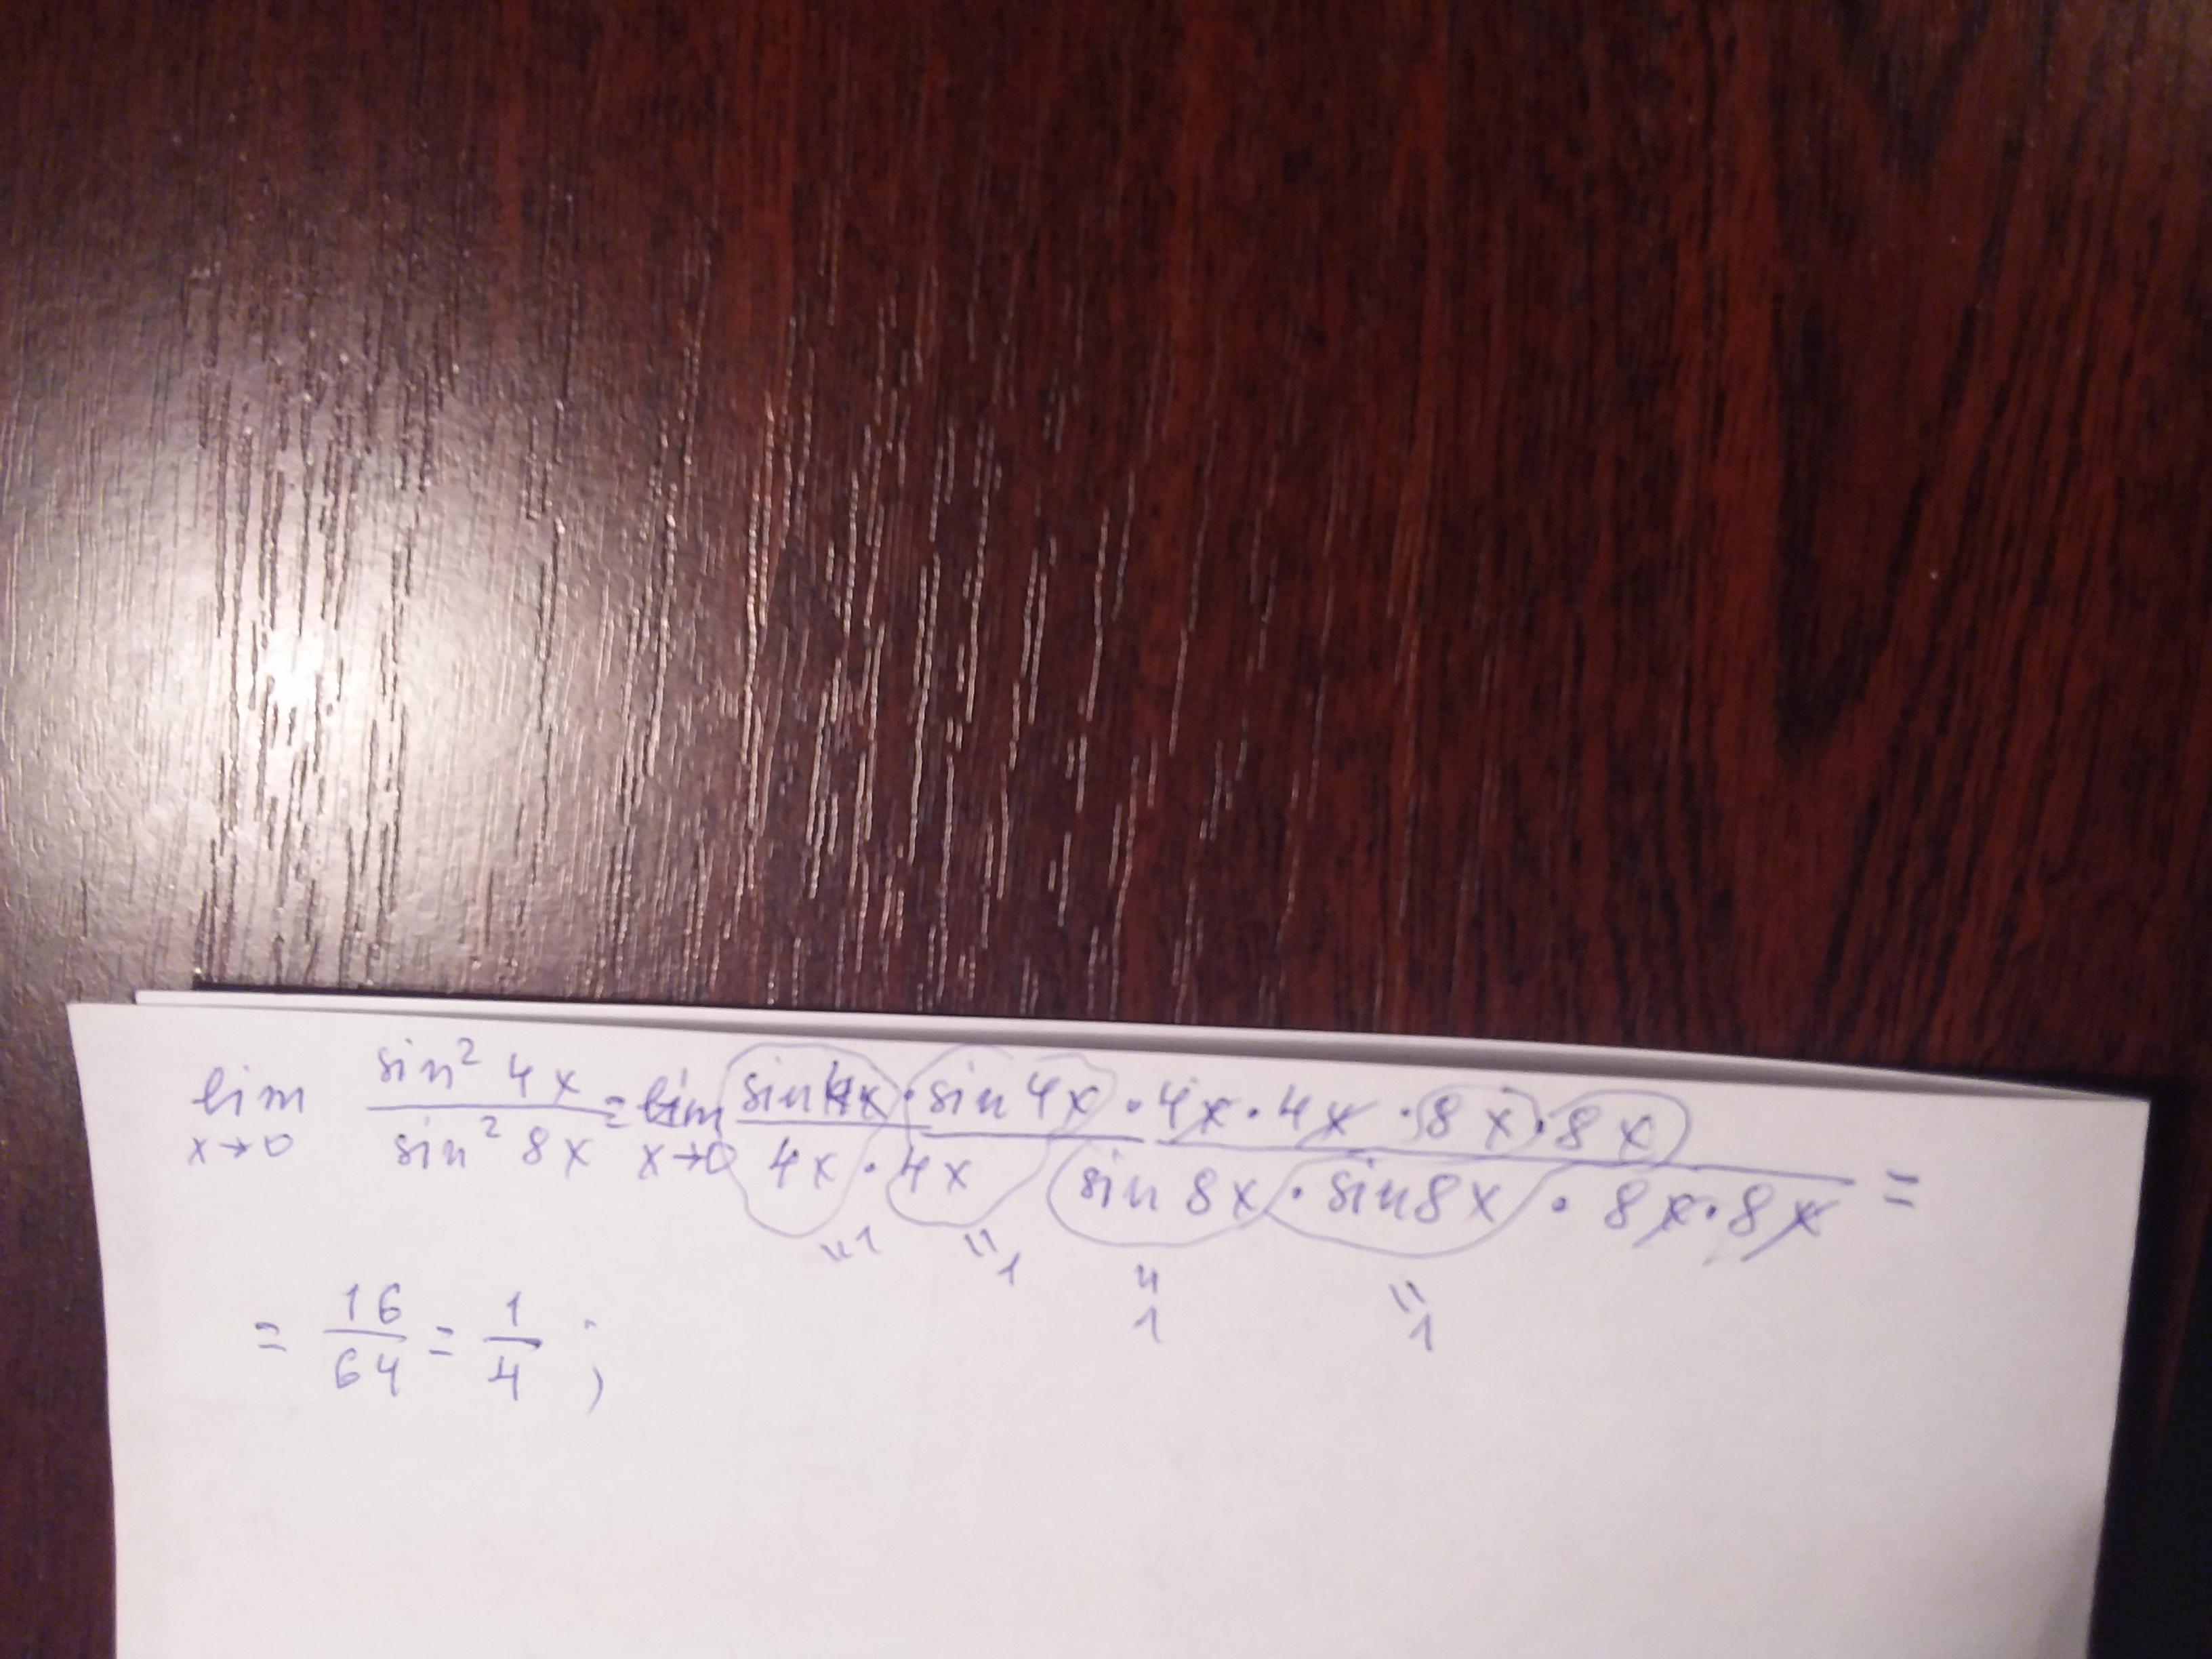 lim x→0 sin² 4x / sin² 8x = lim x→0 sin 4x · sin 4x · 4x · 4x · 8x · 8x / 4x · 4x sin 8x · sin 8x · 8x · 8x =
"1 "1 "1 "1
= 16/64 = 1/4 ;